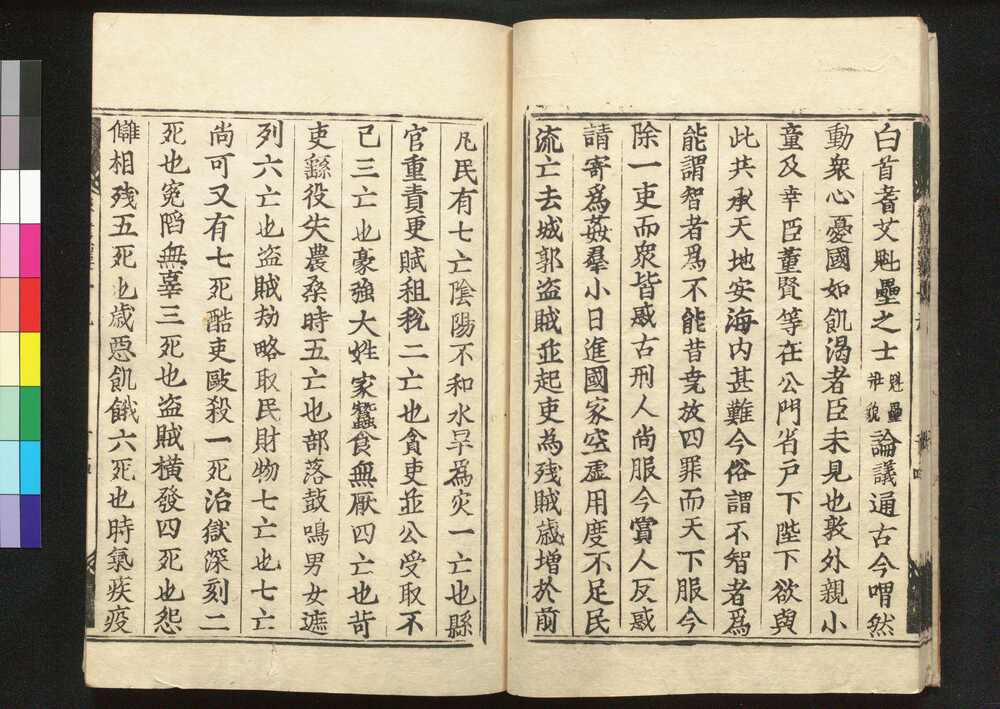 白首耆艾魁壘之士魁壘壯貌論議通古今喟然
動衆心憂國如飢渴者臣未見也敦外親小
童及幸臣董賢等在公門省戸下陛下欲與
此共承天地安海内甚難今俗謂不智者爲
能謂智者爲不能昔堯放四罪而天下服今
除一吏而衆皆惑古刑人尚服今賞人反惑
請寄爲姦羣小日進國家空虚用度不足民
流亡去城郭盗賊並起吏為残賊歳増於前
凡民有七亡陰陽不和水旱為灾一亡也縣
官重責更賦租稅二亡也貪吏並公受取不
已三亡也豪強大姓蠶食無厭四亡也苛
吏繇役失農桑時五亡也部落鼓鳴男女遮
列六亡也盗賊劫略取民財物七亡也七亡
尚可又有七死酷吏毆殺一死治獄深刻二
死也寃陷無辜三死也盗賊横發四死也怨
讎相残五死也歳惡飢餓六死也時氣疾疫